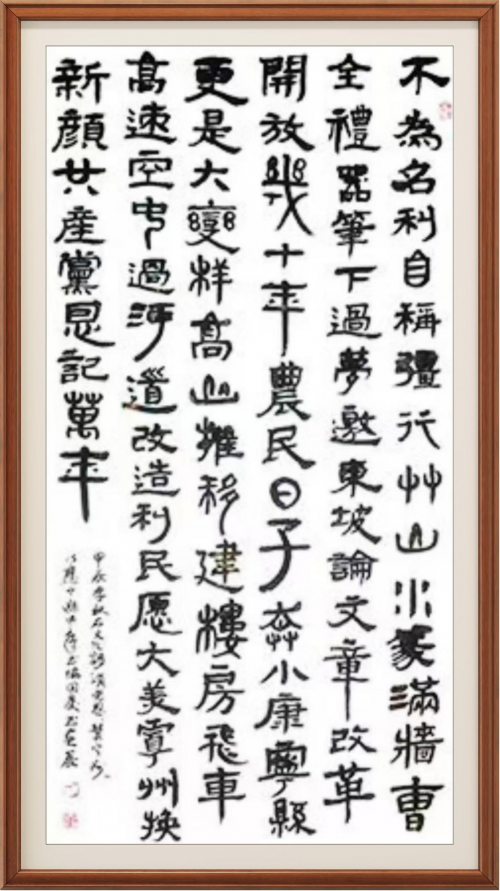 不為名利自稱彊行艸山小篆滿牆曹
全禮器筆下過夢邀東坡論文章改革
開放幾十年農民日子奔小康寧縣
更是大變样高山搬移建樓房飛車
高速空中過河道改造利民愿大美寧州换
新顔共産黨恩記萬年
甲辰季秋